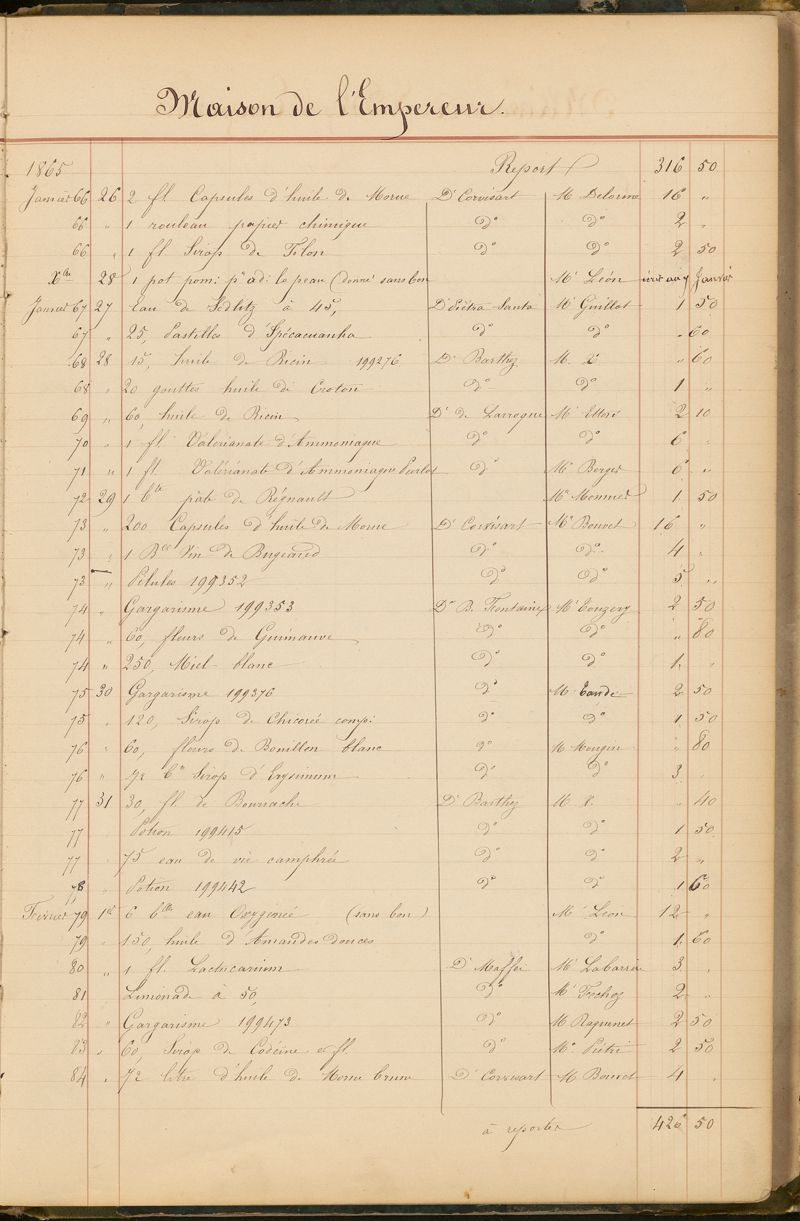 Maison de l'Empereur.
1865 Report 316 50
Janvier 66 26 2 fl Capsules d'huile de Morue Dr Corvisart Mr Delorme 16 "
66 " 1 rouleau papier chimique do do 2 "
66 " 1 fl Sirop de Do do 2 50
Xbre 28 1 pot pom: pr ad: la peau (donné sans bon Mr Léon Janvier
Janvier 67 27 Eau de Sedlitz à 45, Dr Piétra Santa Mr Guillot 1 50
67 " 25, Pastilles d'Ipécacuanha do do " 60
68 28 15, huile de Ricin 199276 Dr Barthez M. X " 60
68 " 20 gouttes huile de Croton do do 1 "
69 " 60, huile de Ricin Dr de Larroque Mr 2 10
70 " 1 fl Valérianate d'Ammoniaque do do 6 "
71 " 1 fl Valérianate d'Ammoniaque Pierlot do Mr Berger 6 "
72 29 1 bte pâte de Régnault Mr Monnier 1 50
73 " 200 Capsules d'huile de Morue Dr Corvisart Mr Bouvet 16 "
73 " 1 Blle Vin de Bugeaud do do 4 "
73 " Pilules 199352 do do 5 "
74 " Gargarisme 199353 Dr B. Fontaine Mr 2 50
74 " 60, fleurs de Guimauve do do " 80
74 " 250, Miel blanc do do 1 "
75 30 Gargarisme 199376 do M. Tandé 2 50
75 " 120, Sirop de Chicorée comp: do do 1 50
76 " 60, fleurs de Bouillon blanc do M Mougin " 80
76 " 1/2 blle Sirop d'Erysimum do do 3 "
77 31 30, fl. de Bourrache Dr Barthez M. X. " 40
77 Potion 199415 do do 1 50
77 " 75 eau de vie camphrée do do 2 "
78 " Potion 199442 do do 1 60
Février 79 1er 6 blles eau Oxygénée (sans bon) Mr Léon 12 "
79 " 150, huile d'Amandes douces do 1 60
80 " 1 fl. Lactucarium Dr Maffei Mr Labarrie 3 "
81 Limonade à 50, do Mr 2 "
82 " Gargarisme 199473 do M Raguenet 2 50
83 " 60, Sirop de Codéine et fl. do Mr Piétri 2 50
84 " 1/2 litre d'huile de Morue brune Dr Corvisart M Bouvet 4 "
à reporter 426 50